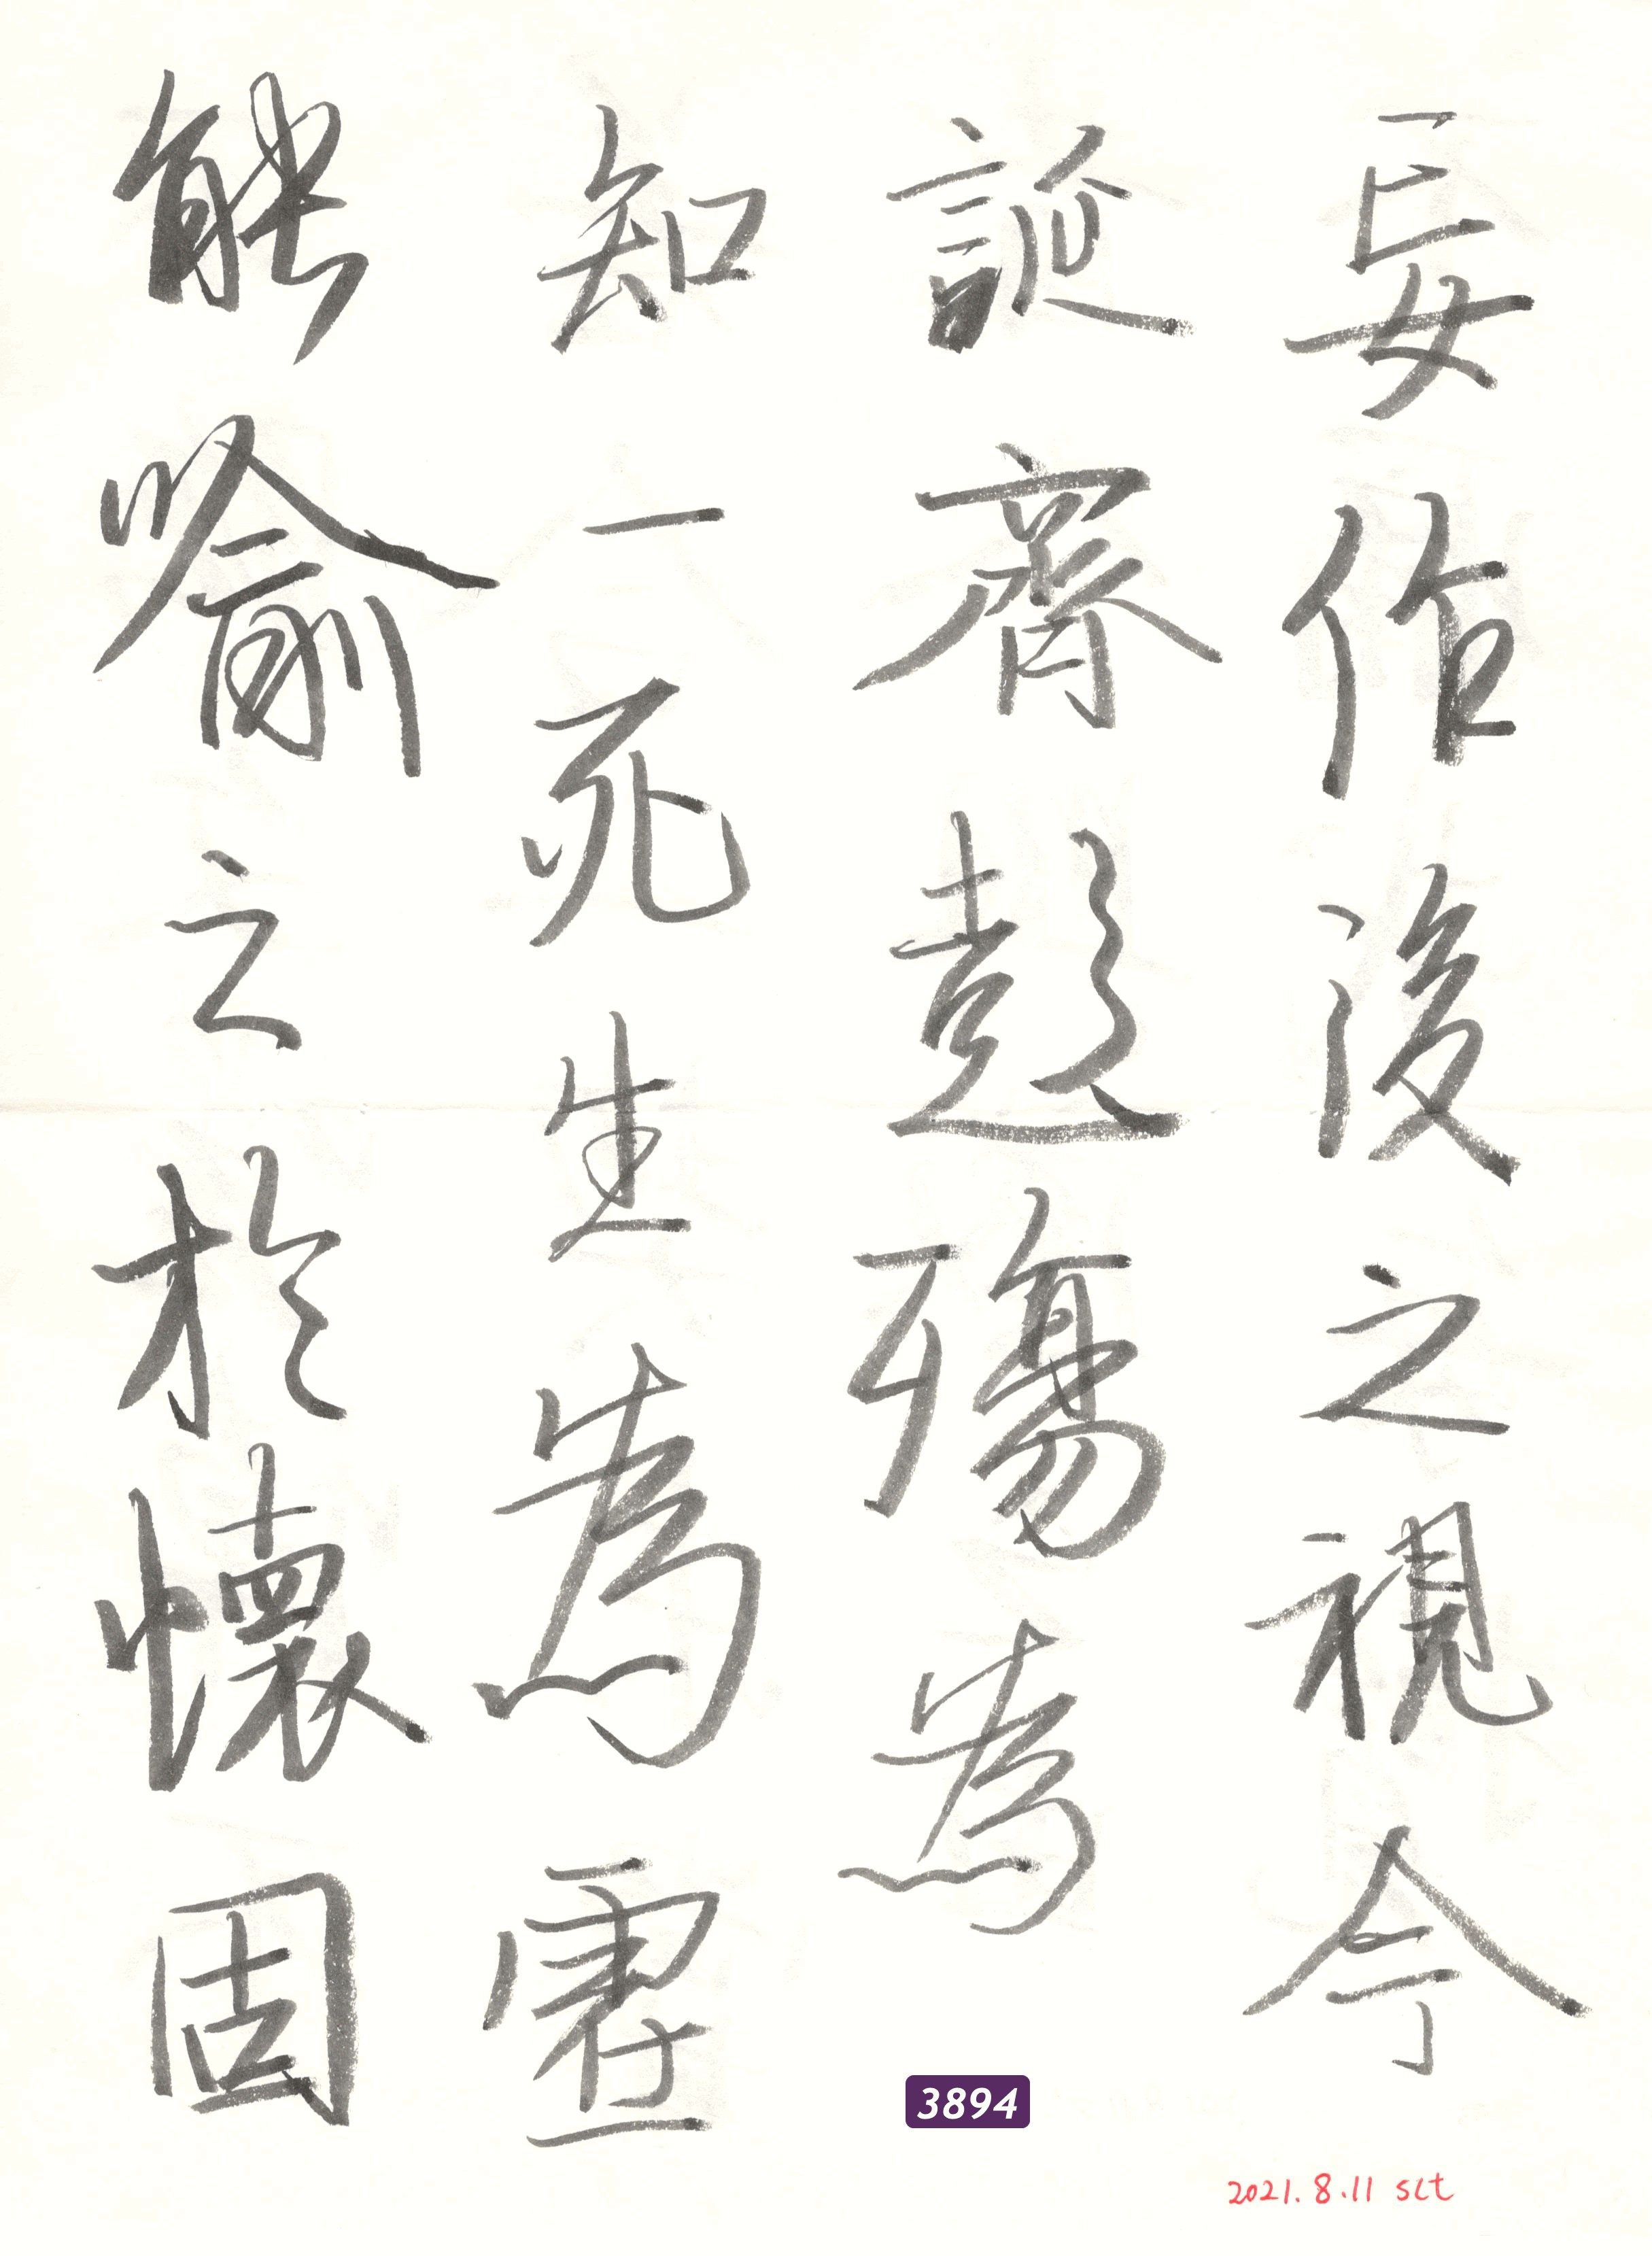 妄作後之視今
誕齊彭殤為
知一死生為虛
能喻之於懷固
3894
2021.8.11 slt